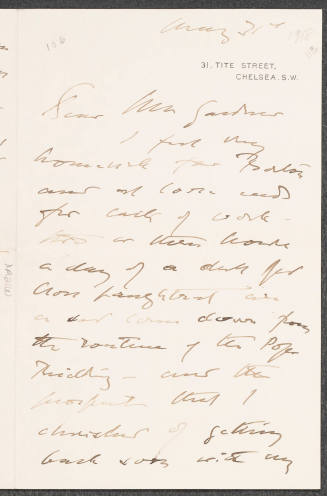 May 31st
31, TITE STREET,
CHELSEA. S.W.
Dear Mrs Gardner
I feel very
homesick for Boston
and at loose ends
for lack of work -
two or three hours
a day of a dull
a down from
the routine of the Pope
- and the
prospect that I
cherished of getting
back soon with my